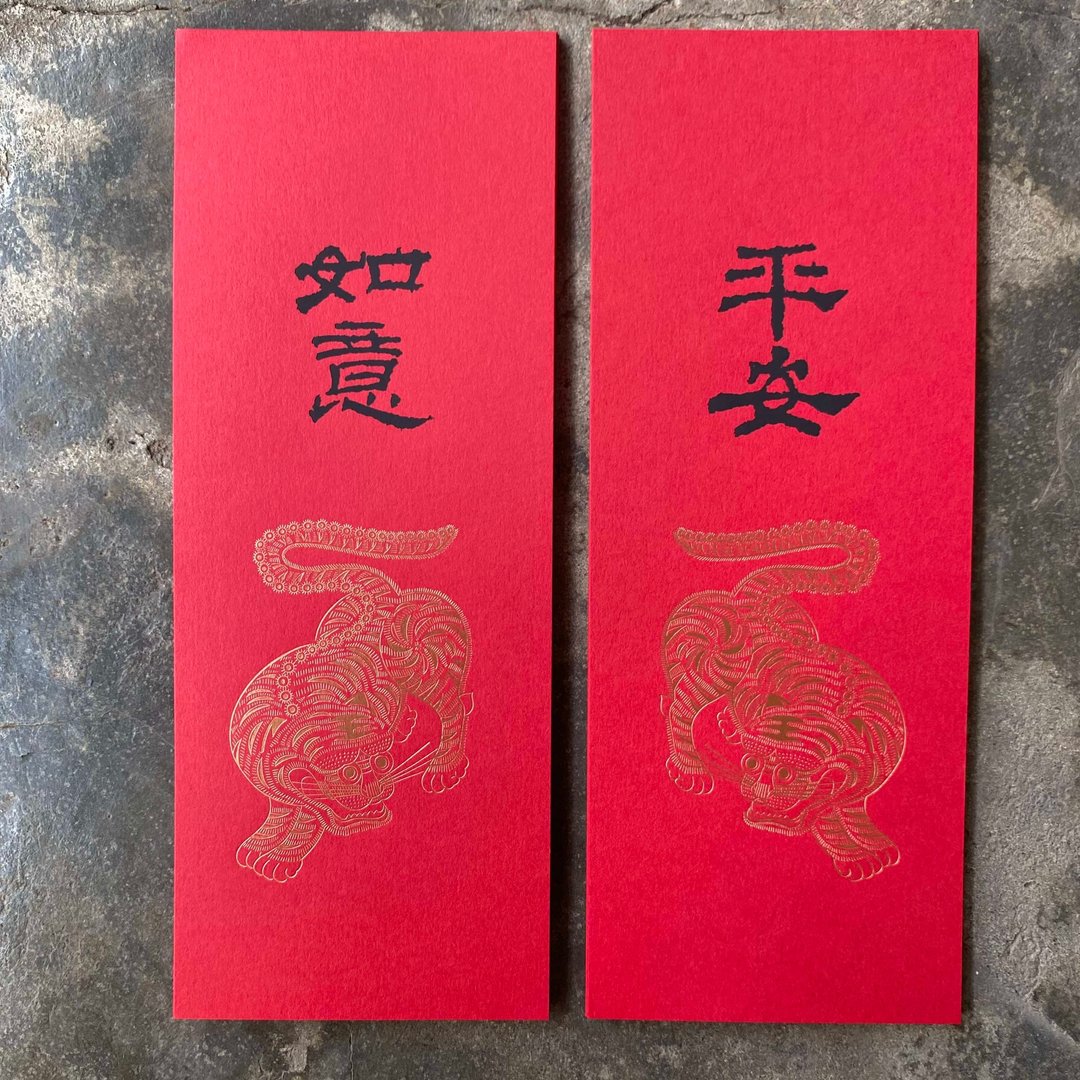 平安
如意